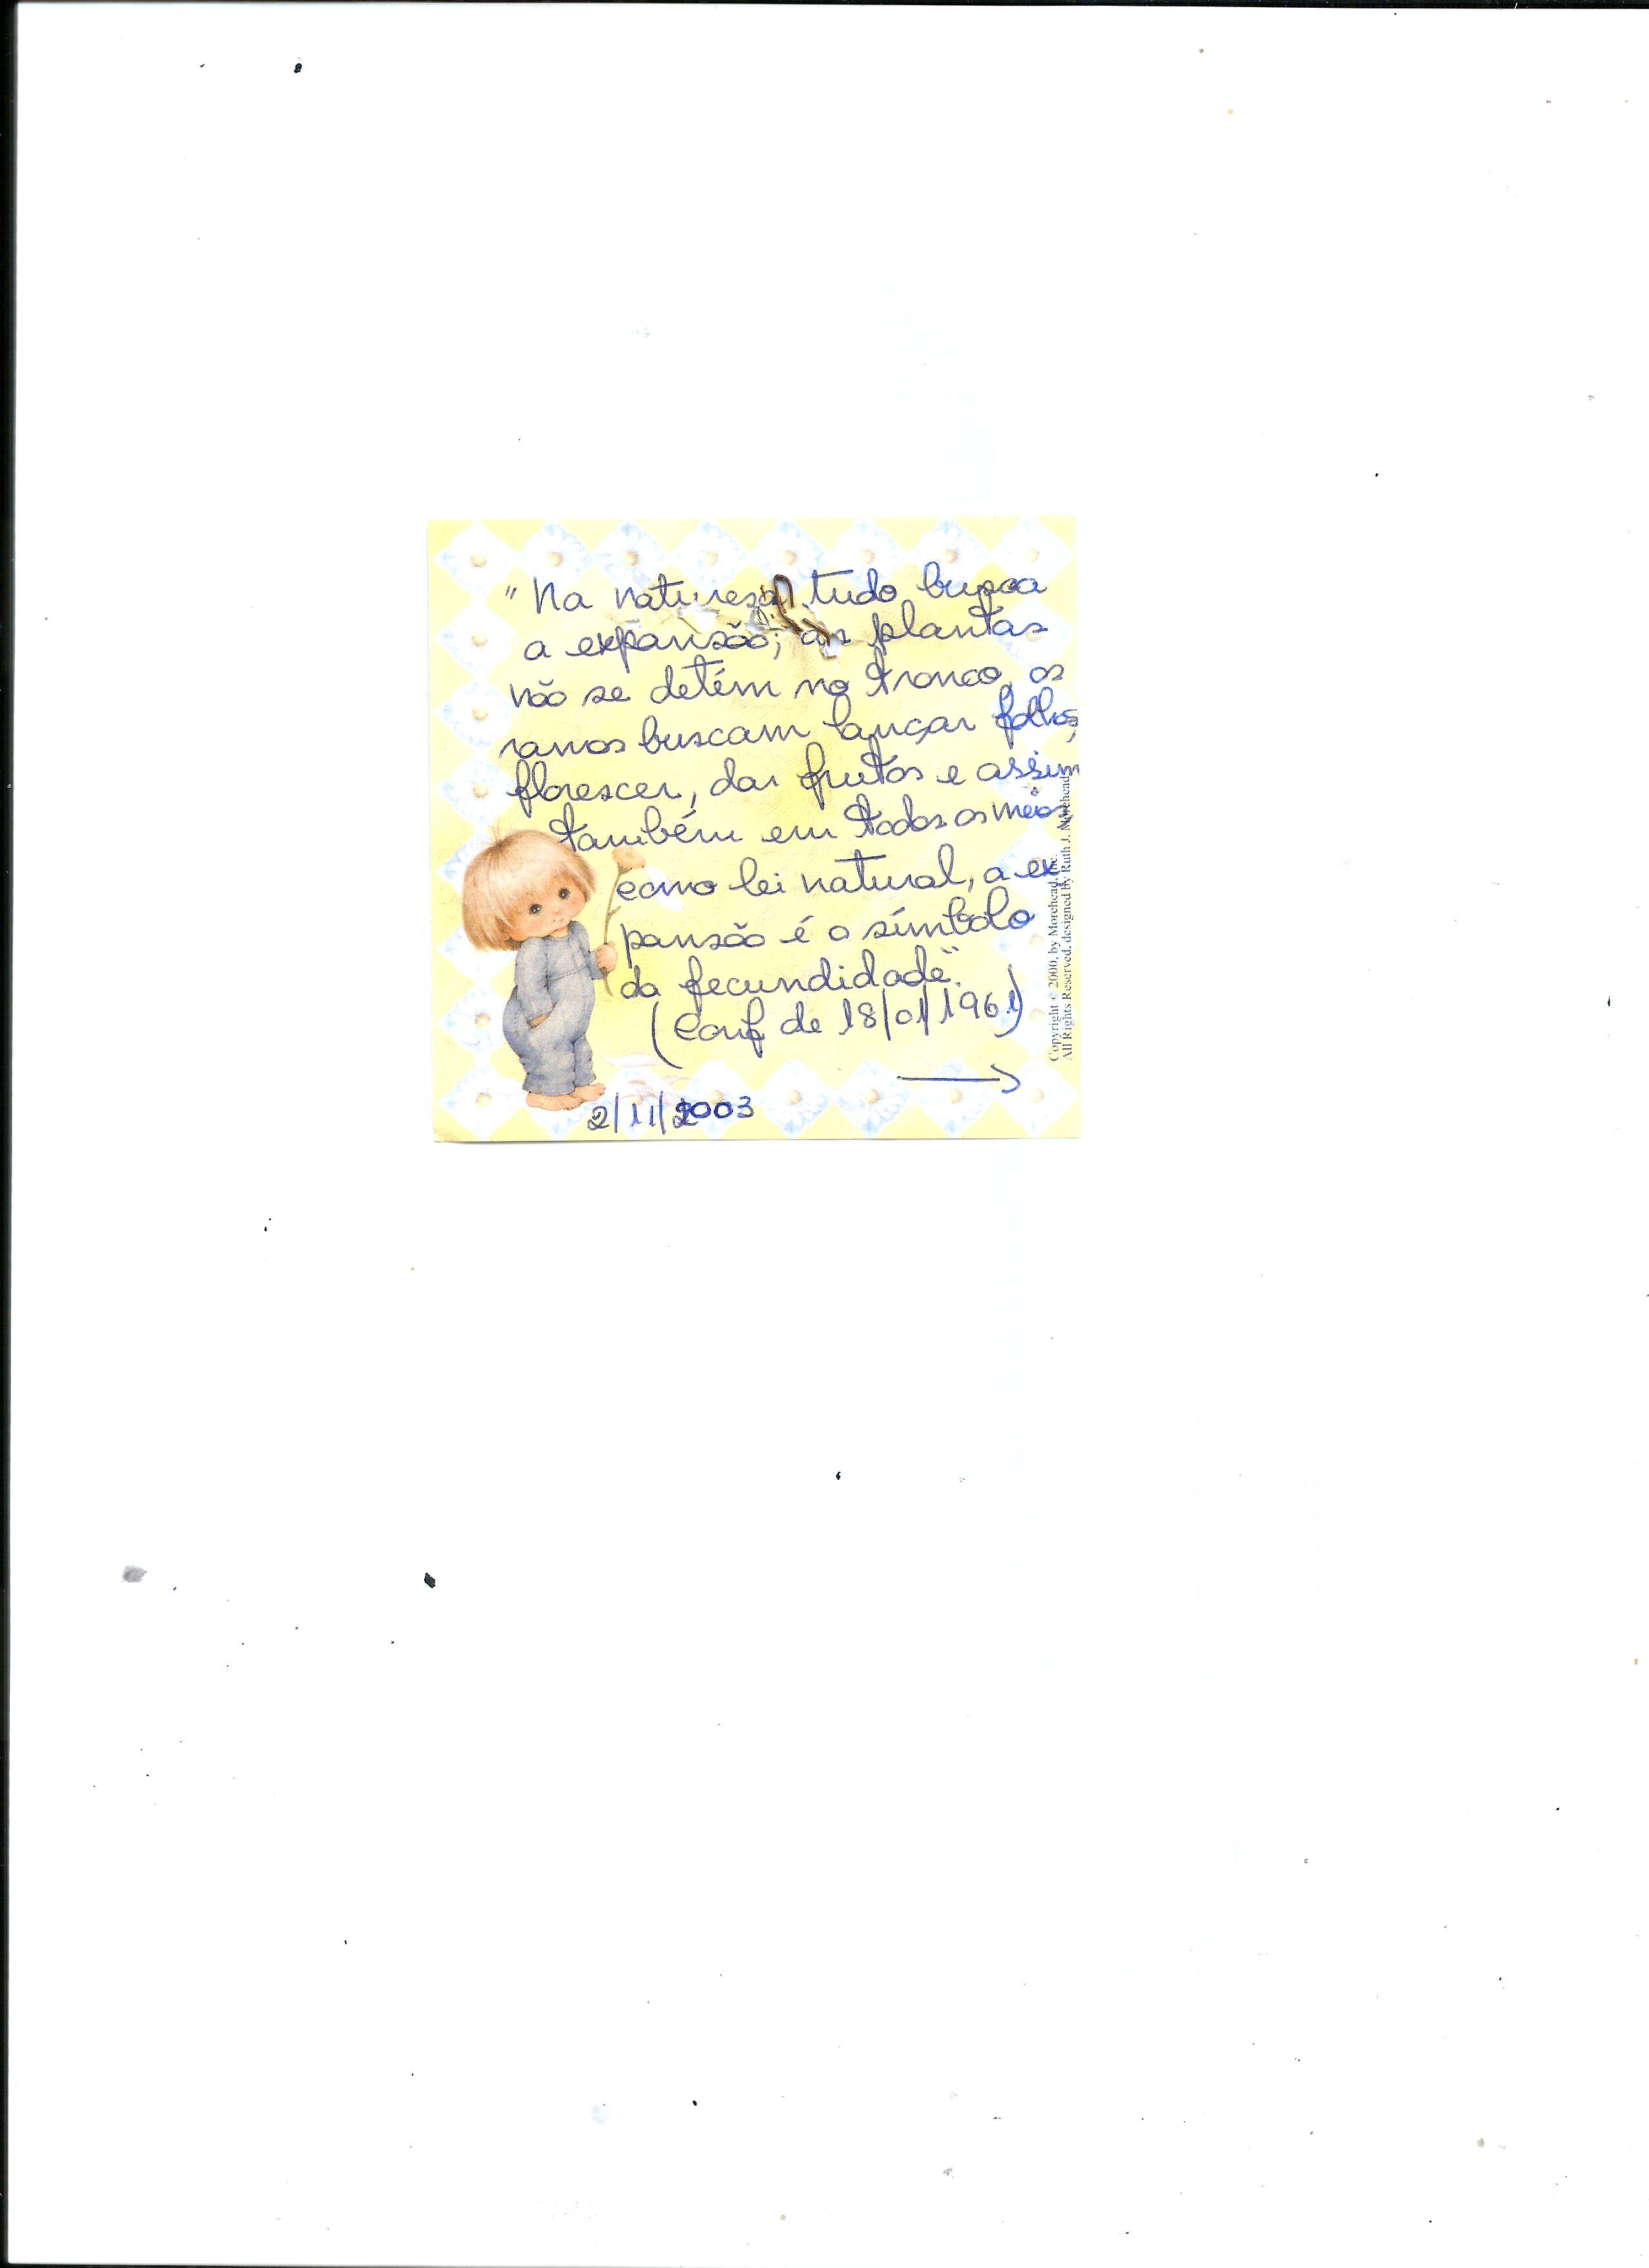 "Na natureza tudo busca
a expansão; as plantas
não se detém no tronco, os
ramos buscam lançar folhas,
florescer, dar frutos e assim
também em todos os meios
como lei natural, a ex
pansão é o símbolo
da fecundidade".
(Conf de 18/01/1961)
2/11/2003
Copyright © 2000, by Morehead, Inc.
All Rights Reserved, designed by Ruth J. Morehead